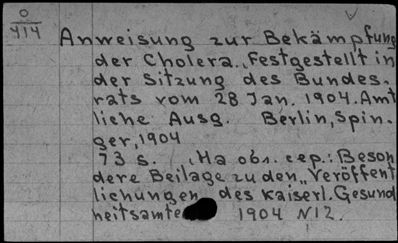 0
414
Anweisung zur Bekämpfung
der Cholera. Festgestellt in
der Sitzung des Bundes-
rats vom 28 Jan. 1904. Amt
liche Ausg. Berlin, Spin-
ger, 1904
73 s. На обл. сер.: Beson
dere Beilage zu den „Veröffent
lichungen des Kaiserl. Gesund
heitsamte 1904 N12.